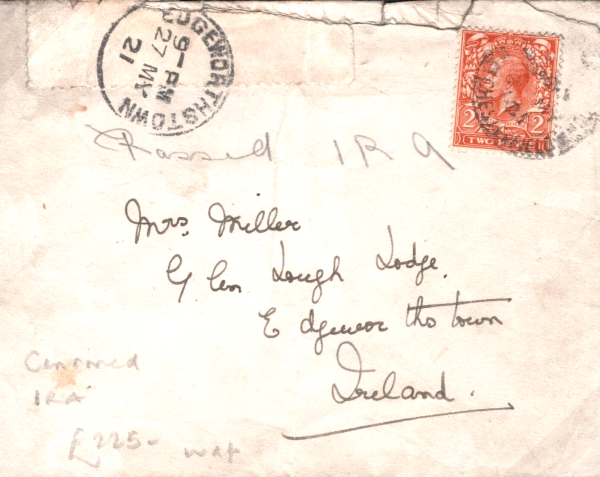 EDGEWORTHSTOWN
9-PM
27 MY
21
2 2
TWO PENCE
Passed IRA
Mrs. Miller
Glen Lough Lodge.
Edgeworthstown
Ireland.
Censored
IRA
£225-